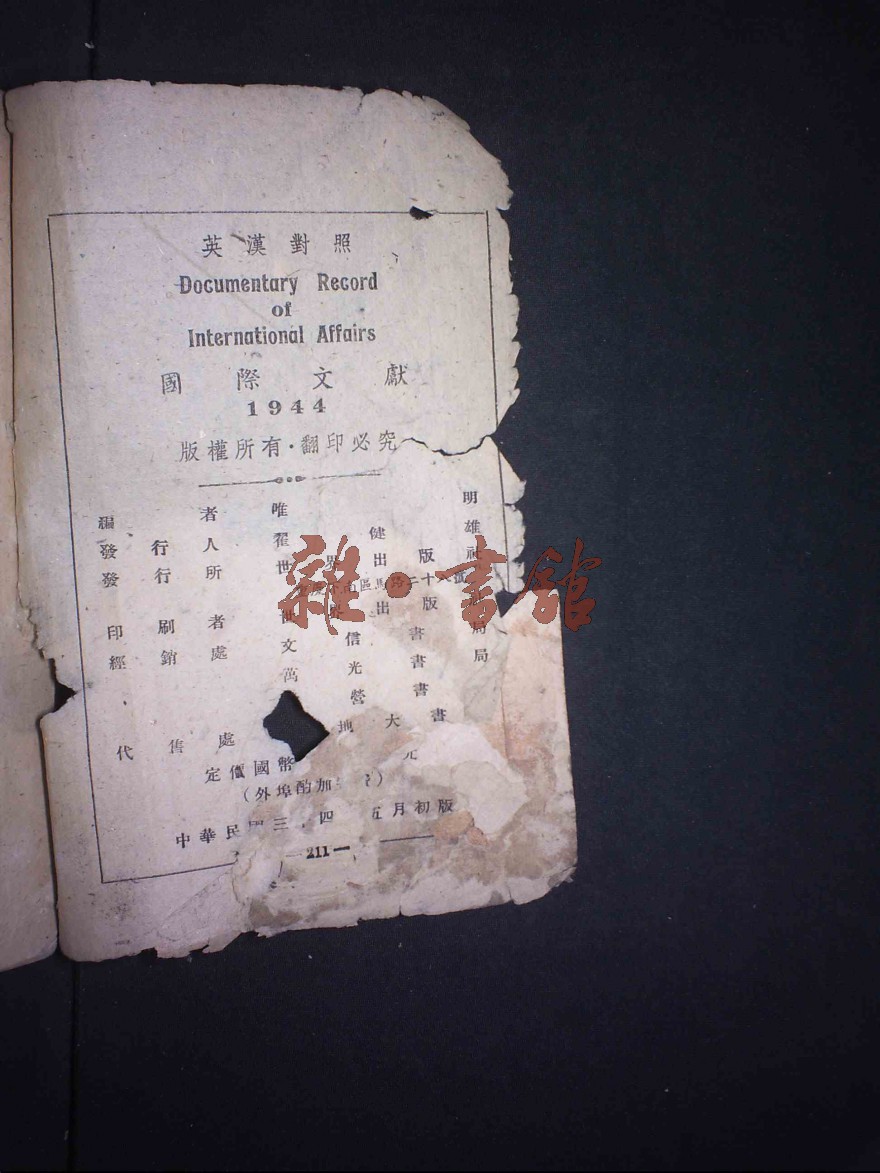 英漢對照
Documentary Record
of
International Affairs
國際文獻
1944
版權所有·翻印必究
編者 唯明
發行人 翟健雄
發行所 世界出版社
印刷者 世界出版
經銷處 文信書局
萬光書局
營書
代售處 地大書
定價國幣 元
(外埠酌加)
中華民國三 四 五月初版
—211—
雜·書館